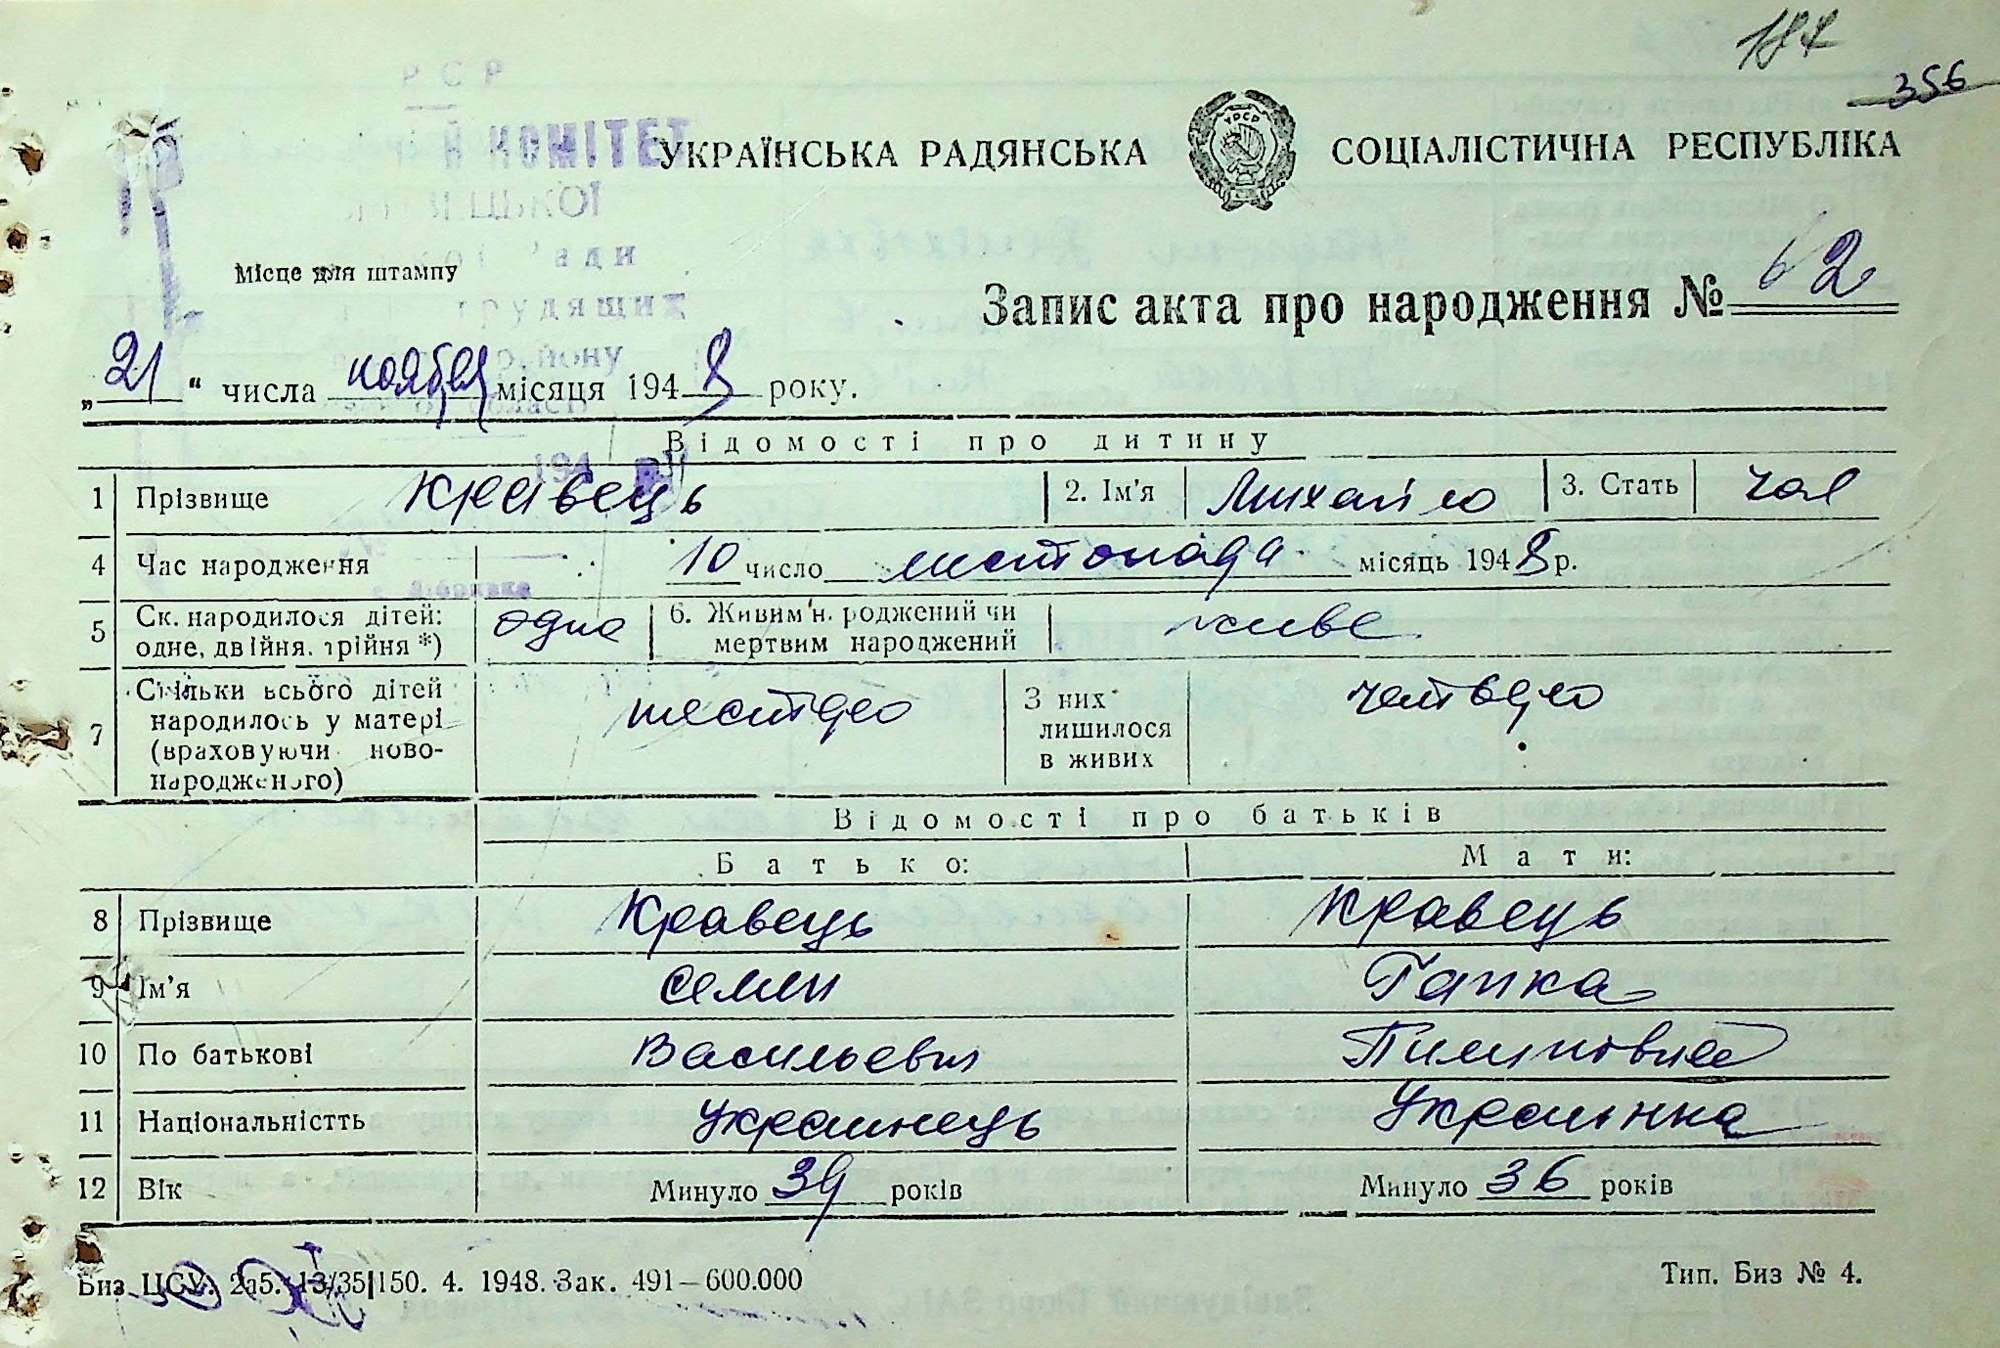 184
356
РСР
Й КОМІТЕТ
УКРАЇНСЬКА РАДЯНСЬКА СОЦІАЛІСТИЧНА РЕСПУБЛІКА
УРСР
ЦЬКОЇ
Ради
Місце для штампу
трудящих
Запис акта про народження № 62
району
„21“ числа ноября місяця 1948 року.
області
Відомості про дитину
194
1 Прізвище Кравець 2. Ім'я Михайло 3. Стать чол
4 Час народження 10 число листопада місяць 1948 р.
5 Ск. народилося дітей: одне, двійня, трійня *) одна 6. Живим н. роджений чи мертвим народжений живе
7 Скільки всього дітей народилось у матері (враховуючи ново-народженого) шестдро З них лишилося в живих четверо
Відомості про батьків
Батько: Мати:
8 Прізвище Кравець Кравець
9 Ім'я Семен Гапка
10 По батькові Васильевич
11 Національністть Украинець Украінка
12 Вік Минуло 39 років Минуло 36 років
Биз ЦСУ. 2а5. 13/35|150. 4. 1948. Зак. 491—600.000 Тип. Биз № 4.